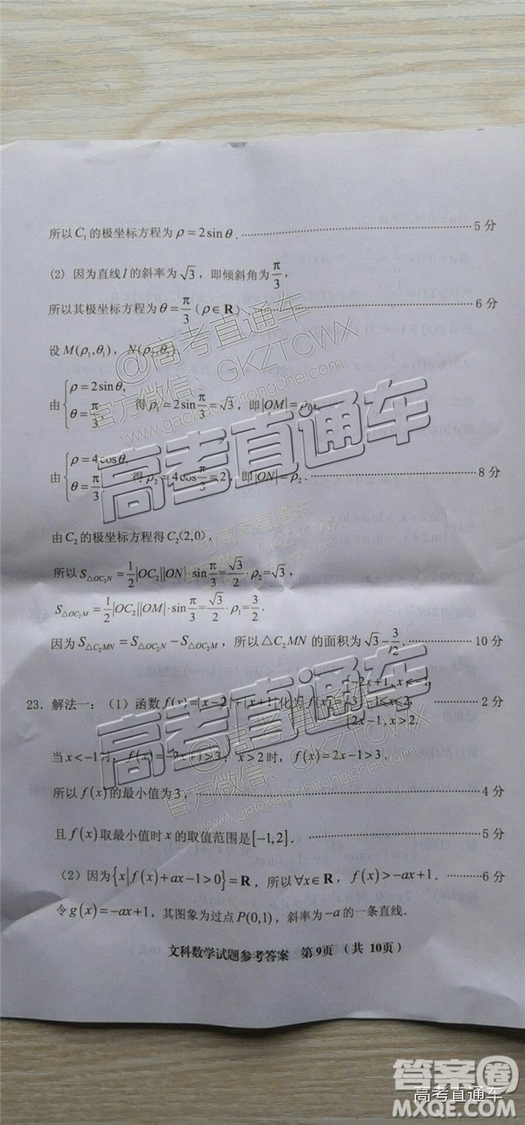 所以C₁的极坐标方程为ρ=2sinθ.……5分
(2) 因为直线l的斜率为√3，即倾斜角为π/3，
所以其极坐标方程为θ=π/3 (ρ∈R).……6分
设M(ρ₁,θ₁)，N(ρ₂,θ₂)
由{ρ=2sinθ, θ=π/3, 得ρ₁=2sinπ/3=√3，即|OM|=ρ₁,
由{ρ=4cosθ, θ=π/3, 得ρ₂=4cosπ/3=2，即|ON|=ρ₂.……8分
由C₂的极坐标方程得C₂(2,0)，
所以S△OC₂N=1/2|OC₂||ON|·sinπ/3=√3/2·ρ₂=√3，
S△OC₂M=1/2|OC₂||OM|·sinπ/3=√3/2·ρ₁=3/2.
因为S△C₂MN=S△OC₂N−S△OC₂M，所以△C₂MN的面积为√3−3/2.……10分
23. 解法一：(1) 函数f(x)=|x−2|+|x+1|化为f(x)={−2x+1,x<−1, 3,−1≤x≤2, 2x−1,x>2.……2分
当x<−1时，f(x)=−2x+1>3，x>2时，f(x)=2x−1>3，
所以f(x)的最小值为3，……4分
且f(x)取最小值时x的取值范围是[−1,2].……5分
(2) 因为{x|f(x)+ax−1>0}=R，所以∀x∈R，f(x)>−ax+1.……6分
令g(x)=−ax+1，其图象为过点P(0,1)，斜率为−a的一条直线.
文科数学试题参考答案 第9页（共10页）
@高考直通车
官方微信：GKZTCWX
高考直通车
高考直通车
官方微信：GKZTCWX
高考直通车
答案圈
MXQE.COM